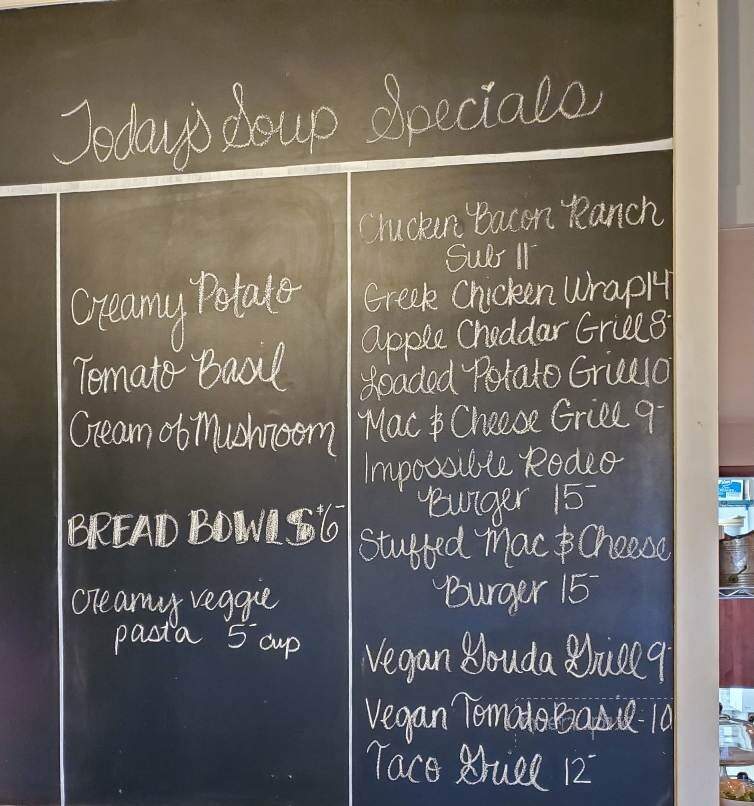 Today's Soup Specials
Creamy Potato
Tomato Basil
Cream of Mushroom
BREAD BOWLS $6-
creamy veggie
pasta 5- cup
Chicken Bacon Ranch
Sub 11-
Greek Chicken Wrap 14
Apple Cheddar Grill 8-
Loaded Potato Grill 10
Mac & Cheese Grill 9-
Impossible Rodeo
Burger 15-
Stuffed Mac & Cheese
Burger 15-
Vegan Gouda Grill 9
Vegan Tomato Basil - 10
Taco Grill 12-